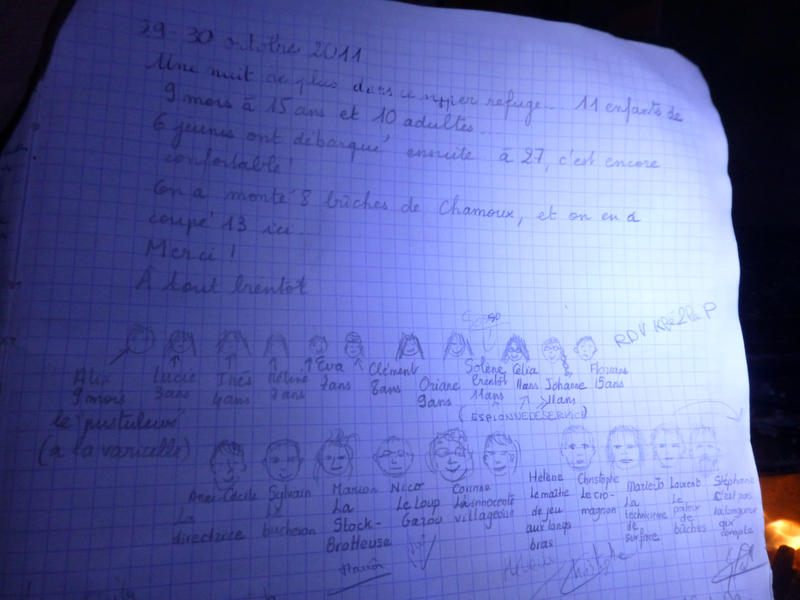 29-30 octobre 2011
Une nuit de plus dans ce super refuge... 11 enfants de
9 mois à 15 ans et 10 adultes...
6 jeunes ont débarqué ensuite à 27, c'est encore
confortable!
On a monté 8 bûches de Chamoux, et on en a
coupé 13 ici...
Merci!
A tout bientôt
RDV
Alix
9 mois
le "pustuleux"
(a la varicelle)
Lucie
3 ans
Inès
4 ans
Héline
7 ans
Eva
7 ans
Clément
8 ans
Oriane
9 ans
Solène
bientôt
11 ans
Célia
11 ans
Johanne
11 ans
15 ans
(ESPIONNEDESERVICE)
Anne-Cécile
La
directrice
Sylvain
Le
bucheron
Manon
La
Stock-
Brotteuse
Nico
Le Loup
Garou
Corinne
La innocente
villageoise
Hélène
Le maître
de jeu
aux longs
bras
Christophe
Le cro-
magnon
Marie-Jo
La
technicienne
de
surface
Laurent
Le
poleur
de
bûches
Stéphane
C'est pas
la longueur
qui
compte
Manon
Christophe